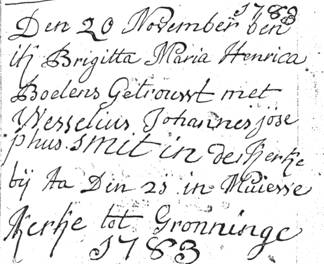 1783
Den 20 November ben
ik Brigitta Maria Henrica
Boelens Getrouwt met
Wesselius Johannes jose
phus. smit in de kerke
bij Aa Den 25 in Muiesse
Kerke tot Gronninge
1783